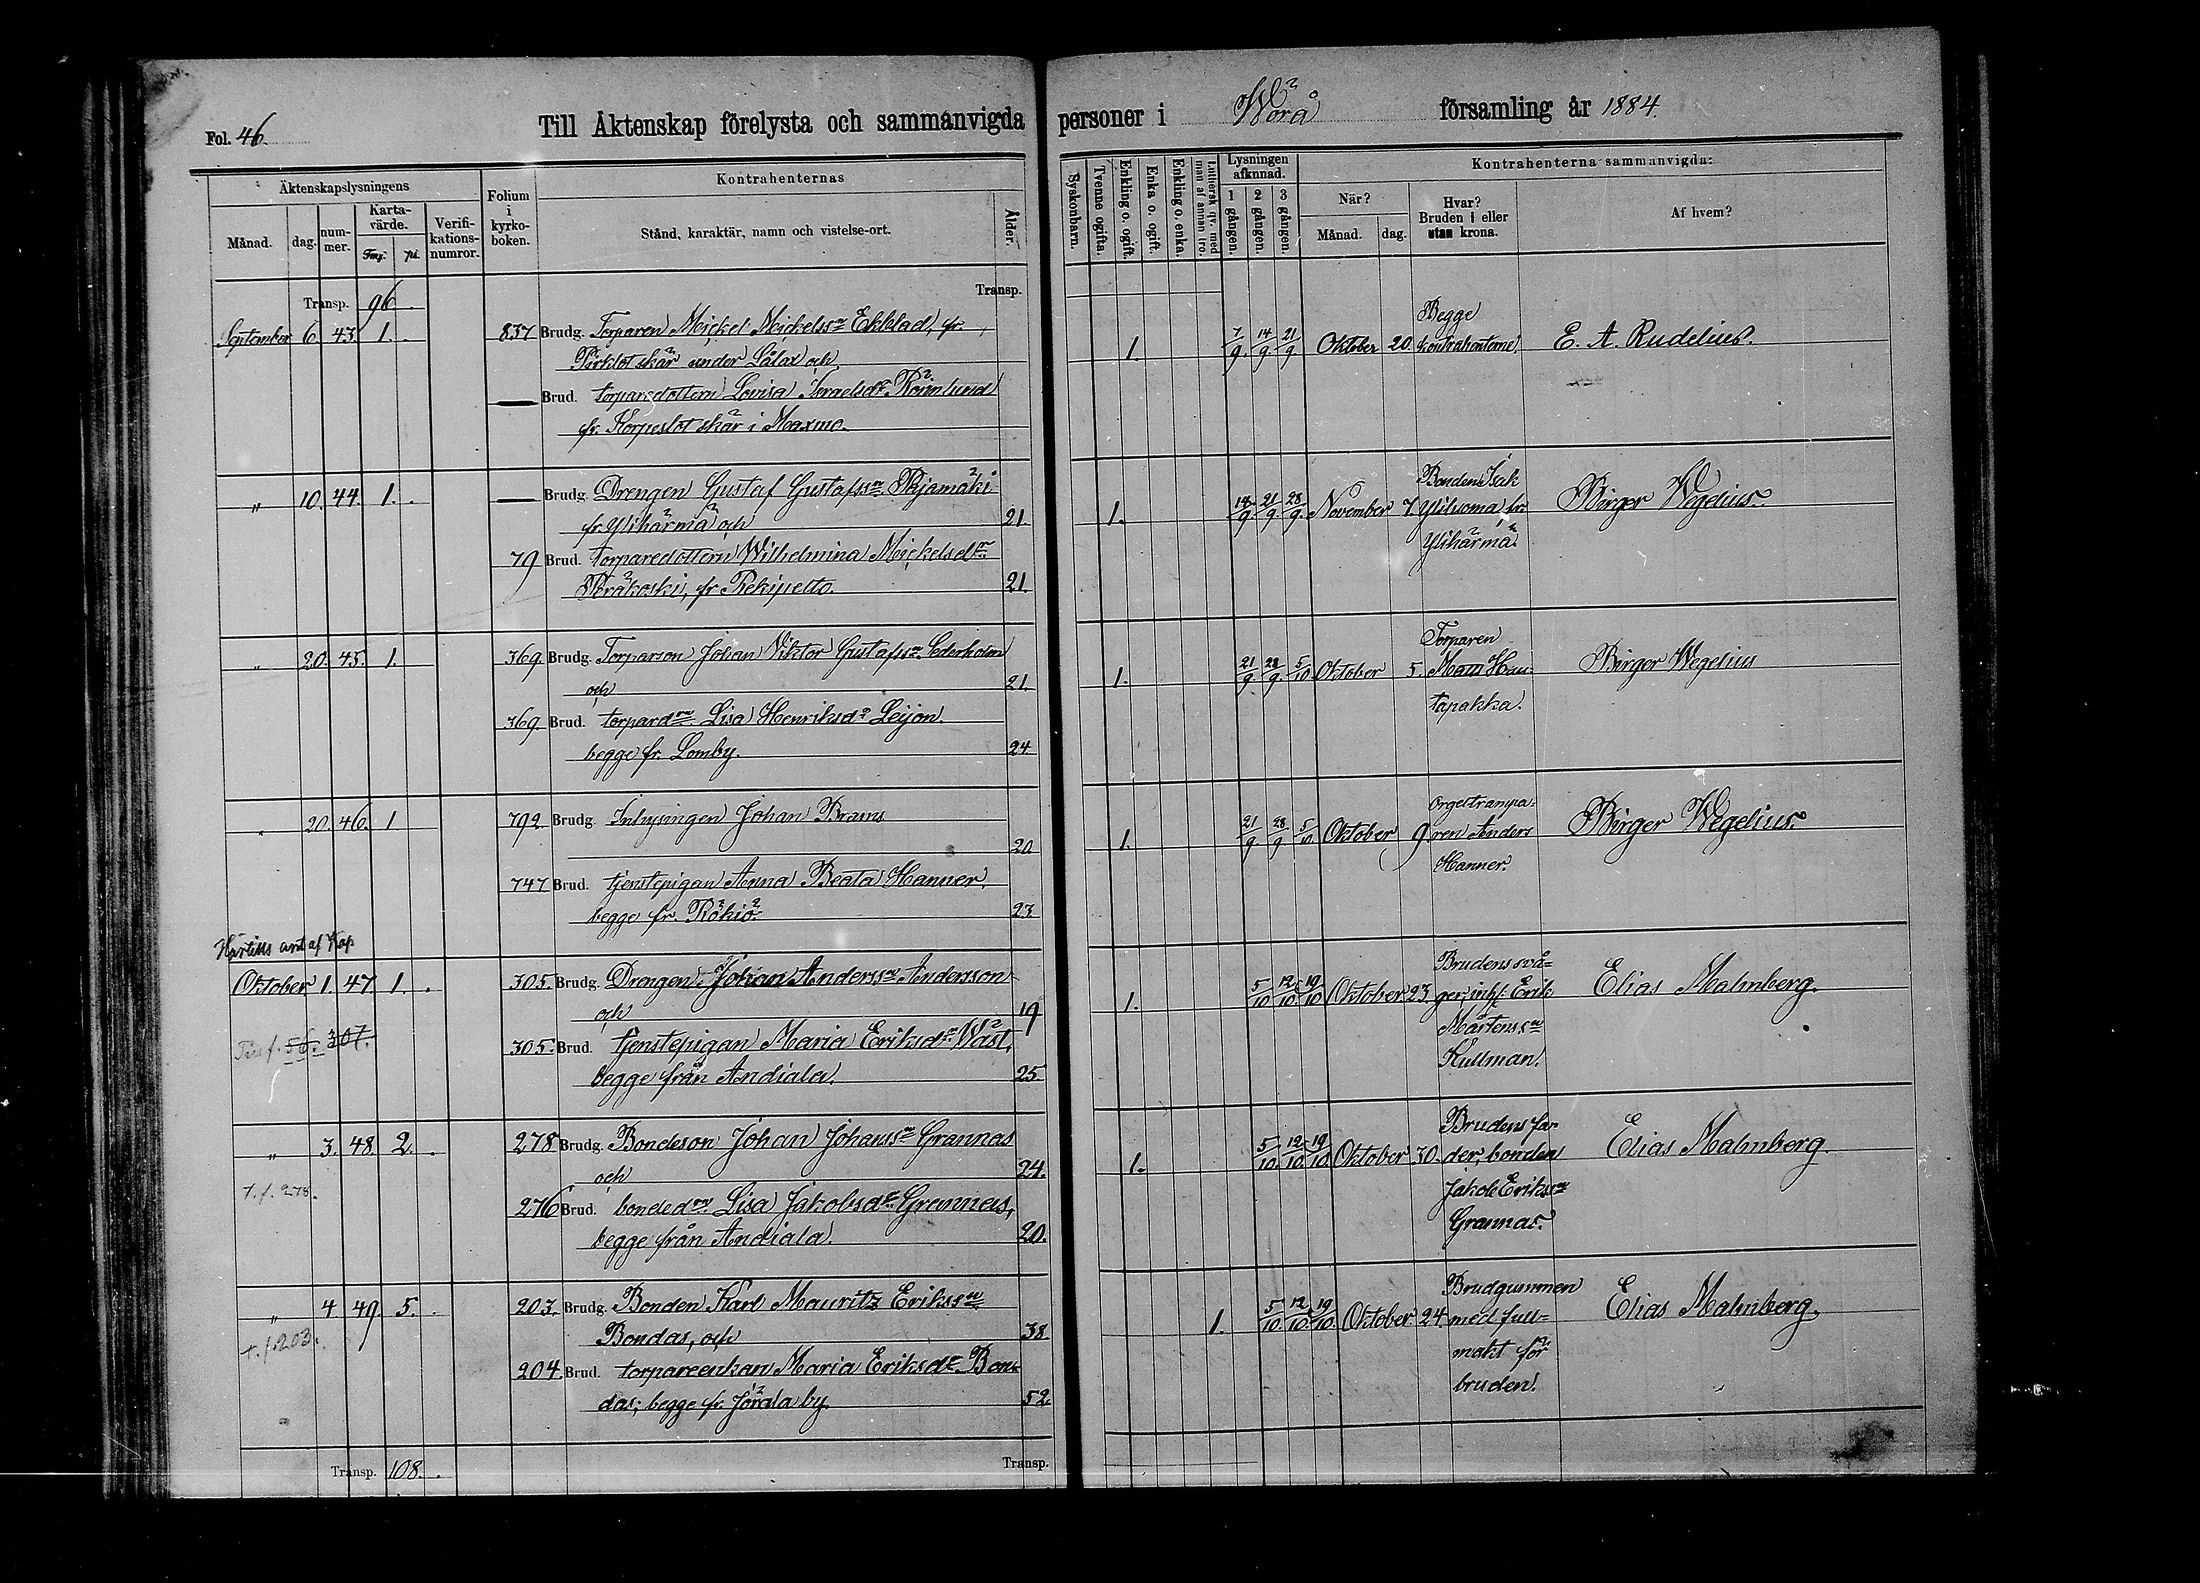 Fol. 46.
Till Äktenskap förelysta och sammanvigda personer i Wörå församling år 1884.
Äktenskapslysningens
Månad.
dag.
num-
mer.
Karta-
värde.
Fmg. pi.
Verifi-
kations-
numror.
Folium
i
kyrko-
boken.
Kontrahenternas
Stånd, karaktär, namn och vistelse-ort.
Ålder.
Syskonbarn.
Tvenne ogifta.
Enkling o. ogift.
Enka o. ogift.
Enkling o. enka.
Luthersk qv. med
man af annan tro.
Lysningen
afkunnad.
1 gången.
2 gången.
3 gången.
Kontrahenterna sammanvigda:
När?
Månad. dag.
Hvar?
Bruden i eller
utan krona.
Af hvem?
Transp. 96 . Transp.
September 6. 43. 1. . 837 Brudg. Torparen Mickel Mickelssn Ekblad, fr.
skär under Lålax och
Brud. torparedottern Lovisa Israelsdr Rönnlund
fr. skär i Maxmo.
1. 7/9. 14/9. 21/9 Oktober 20.
Begge
kontrahenterne.
E. A. Rudelius.
" 10. 44. 1. . Brudg. Drengen Gustaf Gustafssn
fr. Ylihärmä och 21.
79 Brud. torparedottern Wilhelmina Mickelsdr
Peräkoski, fr. Rekipelto. 21.
1. 14/9. 21/9 28/9. November 7.
Bonden Isak
fr.
Ylihärmä.
Birger Wegelius.
" 20. 45. 1. 369. Brudg. Torparson Johan Viktor Gustafssn Cederholm
och 21.
369. Brud. torpardrn Lisa Henriksdr Leijon.
begge fr. Lomby. 24
1. 21/9. 28/9. 5/10 Oktober 5.
Torparen
Matts Hau-
tapakka.
Birger Wegelius
" 20. 46. 1 792. Brudg. Inhysingen Johan Brams
20.
747. Brud. tjenstepigan Anna Beata Hanner.
begge fr. Rökiö 23
1. 21/9. 28/9 5/10. Oktober 9.
Orgeltrampa-
ren Anders
Hanner.
Birger Wegelius.
Härtills ant af Kap
Oktober 1. 47. 1. . 305. Brudg. Drengen Johan Anderssn Andersson
och 19
56. 307.
305. Brud. tjenstepigan Maria Eriksdr Wäst,
begge från Andiala. 25.
1. 5/10 12/10. 19/10 Oktober 23.
Brudens svå-
ger, inh. Erik
Mårtenssn
Kullman.
Elias Malmberg.
" 3. 48. 2. . 278 Brudg. Bondeson Johan Johanssn Grannas
och 24.
T. f. 278.
276 Brud. bondedrn Lisa Jakobsdr Grannas,
begge från Andiala. 20.
1. 5/10. 12/10. 19/10 Oktober 30.
Brudens fa-
der, bonden
Jakob Erikssn
Grannas.
Elias Malmberg.
" 4. 49. 5. . 203. Brudg. Bonden Karl Mauritz Erikssn
t. f. 203.
Bondas, och 38.
204. Brud. torpareenkan Maria Eriksdr Bon-
das; begge fr. Jörala by. 52.
1. 5/10. 12/10. 19/10. Oktober 24.
Brudgummen
med full-
makt för
bruden.
Elias Malmberg.
Transp. 108. . Transp.